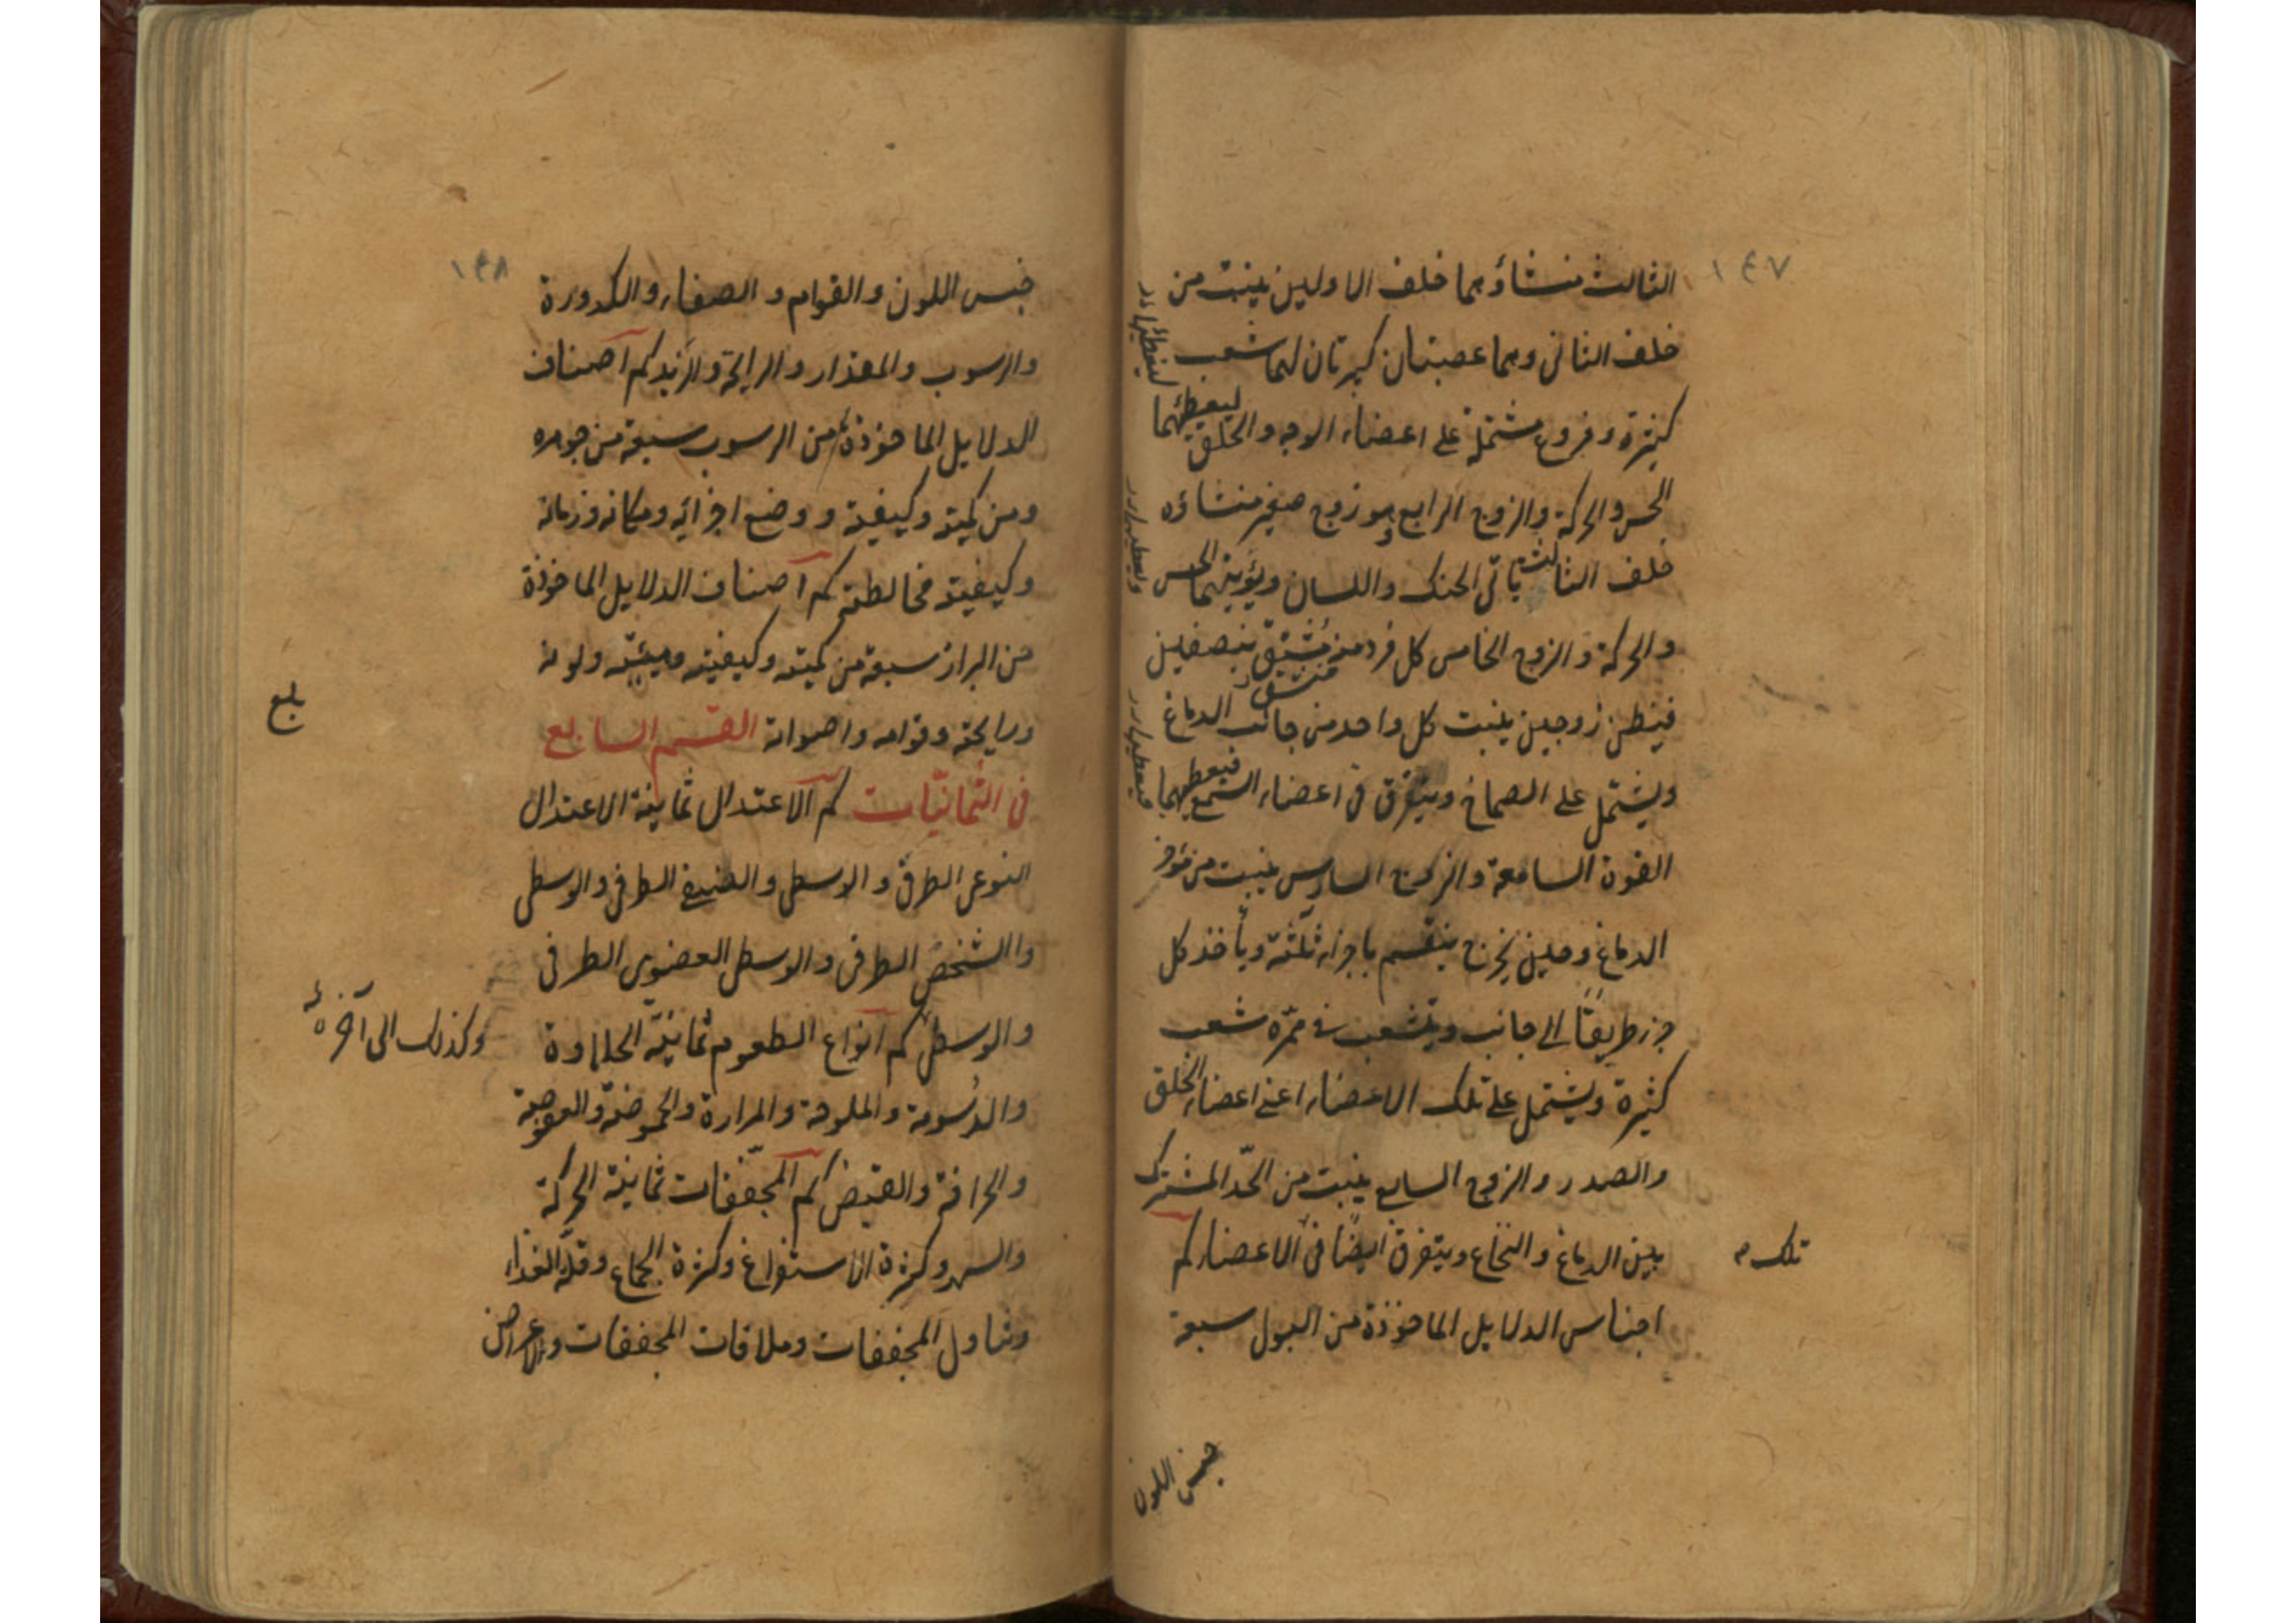 ١٤٧
الثالث منشاؤهما خلف الاولين ينبت من
خلف الثانى وهما عصبتان كبيرتان لهما شعب
كثيرة وفروع مشتملة على اعضاء الوجه والحلق ليعطيهما
الحس والحركة والزوج الرابع وهو زوج صغير منشاؤه
خلف الثالث ياتى الحنك واللسان ويؤتيهما الحس
والحركة والزوج الخامس كل فرد منه مُنشَقّ بنصفين
منشق
فيظن زوجين ينبت كل واحد من جانب الدماغ
ويشتمل على الصماخ ويتفرق فى اعضاء السمع فيعطيهما
القوة السامعة والزوج السادس ينبت من مؤخر
الدماغ وحين يخرج ينقسم باجزاء ثلثة ويأخذ كل
جزء طريقًا الى جانب ويتشعب فى ممرّه شعب
كثيرة ويشتمل على تلك الاعضاء اعنى اعضاء الحلق
والصدر والزوج السابع ينبت من الحدّ المشترك
بين الدماغ والنخاع ويتفرق ايضًا فى الاعضاء كم
تلك
اجناس الدلايل الماخوذة من البول سبعة
جنس اللون
١٤٨
جنس اللون والقوام و الصفاء والكدورة
والرسوب والمقدار والرايحة والزبد كم اصناف
الدلايل الماخوذة من الرسوب سبعة من جوهره
ومن كميته وكيفيته ووضع اجزائه ومكانه وزمانه
وكيفيته مخالطته كم اصناف الدلايل الماخوذة
من البراز سبعة من كميته وكيفيته وهيئته ولونه
ورايحته وقوامه واصواته القسم السابع
بلغ
فى الثمانيّات كم الاعتدال ثمانية الاعتدال
النوعى الطرفى والوسط والصنفى الطرفى والوسط
والشخصى الطرفى والوسط العضوى الطرفى
والوسط كم انواع الطعوم ثمانية الحلاوة
وكذلك الى آخره
والدُسومة والملوحة والمرارة والحموضة والعفوصة
والحرافة والقبض كم المجفّفات ثمانية الحركة
والسهر وكثرة الاستفراغ وكثرة الجماع وقلة الغذاء
وتناول المجففات وملاقات المجففات والاعراض